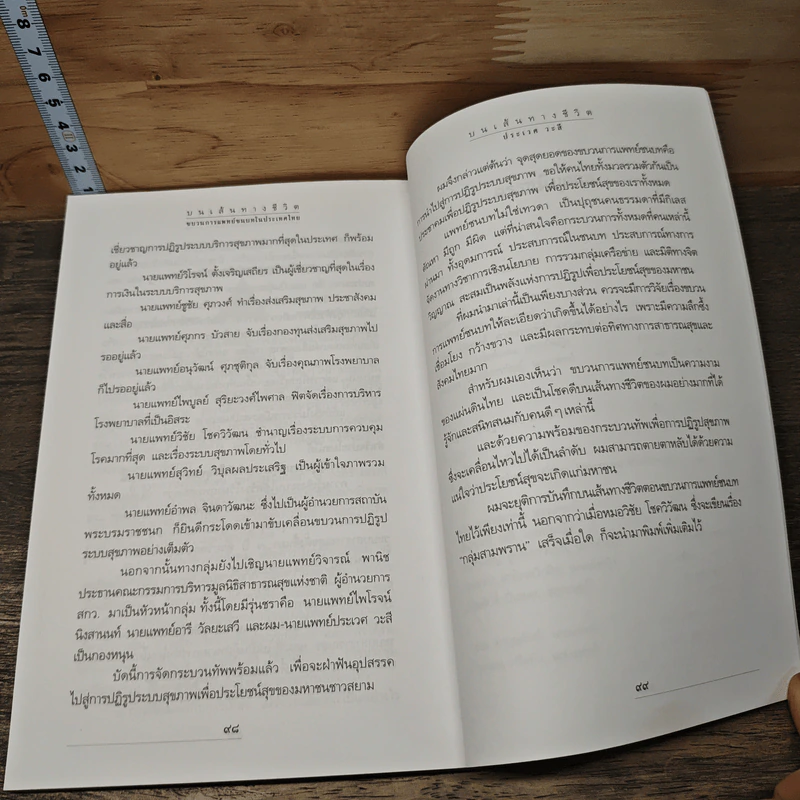 บนเส้นทางชีวิต
ขบวนการแพทย์ชนบทในประเทศไทย
เชี่ยวชาญการปฏิรูประบบบริการสุขภาพมากที่สุดในประเทศ ก็พร้อม
อยู่แล้ว
นายแพทย์วิโรจน์ ตั้งเจริญเสถียร เป็นผู้เชี่ยวชาญที่สุดในเรื่อง
การเงินในระบบบริการสุขภาพ
นายแพทย์ชูชัย ศุภวงศ์ ทำเรื่องส่งเสริมสุขภาพ ประชาสังคม
และสื่อ
นายแพทย์ศุภกร บัวสาย จับเรื่องกองทุนส่งเสริมสุขภาพไป
รออยู่แล้ว
นายแพทย์อนุวัฒน์ ศุภชุติกุล จับเรื่องคุณภาพโรงพยาบาล
ก็ไปรออยู่แล้ว
นายแพทย์ไพบูลย์ สุริยะวงศ์ไพศาล พิตจัดเรื่องการบริหาร
โรงพยาบาลที่เป็นอิสระ
นายแพทย์วิชัย โชควิวัฒน ชำนาญเรื่องระบบการควบคุม
โรคมากที่สุด และเรื่องระบบสุขภาพโดยทั่วไป
นายแพทย์สุวิทย์ วิบุลผลประเสริฐ เป็นผู้เข้าใจภาพรวม
ทั้งหมด
นายแพทย์อำพล จินดาวัฒนะ ซึ่งไปเป็นผู้อำนวยการสถาบัน
พระบรมราชชนก ก็ยินดีกระโดดเข้ามาขับเคลื่อนขบวนการปฏิรูป
ระบบสุขภาพอย่างเต็มตัว
นอกจากนั้นทางกลุ่มยังไปเชิญนายแพทย์วิจารณ์ พานิช
ประธานคณะกรรมการบริหารมูลนิธิสาธารณสุขแห่งชาติ ผู้อำนวยการ
สกว. มาเป็นหัวหน้ากลุ่ม ทั้งนี้โดยมีรุ่นชราคือ นายแพทย์ไพโรจน์
นิงสานนท์ นายแพทย์อารี วัลยะเสวี และผม-นายแพทย์ประเวศ วะสี
เป็นกองหนุน
บัดนี้การจัดกระบวนทัพพร้อมแล้ว เพื่อจะฝ่าฟันอุปสรรค
ไปสู่การปฏิรูประบบสุขภาพเพื่อประโยชน์สุขของมหาชนชาวสยาม
๙๘
บนเส้นทางชีวิต
ประเวศ วะสี
ผมจึงกล่าวแต่ต้นว่า จุดสุดยอดของขบวนการแพทย์ชนบทคือ
การนำไปสู่การปฏิรูประบบสุขภาพ ขอให้คนไทยทั้งมวลรวมตัวกันเป็น
ประชาคมเพื่อปฏิรูประบบสุขภาพ เพื่อประโยชน์สุขของเราทั้งหมด
แพทย์ชนบทไม่ใช่เทวดา เป็นปุถุชนคนธรรมดาที่มีกิเลส
ตัณหา มีถูก มีผิด แต่ที่น่าสนใจคือกระบวนการทั้งหมดที่คนเหล่านี้
ผ่านมา ทั้งอุดมการณ์ ประสบการณ์ในชนบท ประสบการณ์ทางการ
จัดงานทางวิชาการเชิงนโยบาย การรวมกลุ่มเครือข่าย และมิติทางจิต
วิญญาณ สะสมเป็นพลังแห่งการปฏิรูปเพื่อประโยชน์สุขของมหาชน
ที่ผมนำมาเล่านี้เป็นเพียงบางส่วน ควรจะมีการวิจัยเรื่องขบวน
การแพทย์ชนบทให้ละเอียดว่าเกิดขึ้นได้อย่างไร เพราะมีความลึกซึ้ง
เชื่อมโยง กว้างขวาง และมีผลกระทบต่อทิศทางการสาธารณสุขและ
สังคมไทยมาก
สำหรับผมเองเห็นว่า ขบวนการแพทย์ชนบทเป็นความงาม
ของแผ่นดินไทย และเป็นโชคดีบนเส้นทางชีวิตของผมอย่างมากที่ได้
รู้จักและสนิทสนมกับคนดีๆ เหล่านี้
และด้วยความพร้อมของกระบวนทัพเพื่อการปฏิรูปสุขภาพ
ซึ่งจะเคลื่อนไหวไปได้เป็นลำดับ ผมสามารถตายตาหลับได้ด้วยความ
แน่ใจว่าประโยชน์สุขจะเกิดแก่มหาชน
ผมจะยุติการบันทึกบนเส้นทางชีวิตตอนขบวนการแพทย์ชนบท
ไทยไว้เพียงเท่านี้ นอกจากว่าเมื่อหมอวิชัย โชควิวัฒน ซึ่งจะเขียนเรื่อง
"กลุ่มสามพราน" เสร็จเมื่อใด ก็จะนำมาพิมพ์เพิ่มเติมไว้
๙๙
8
7
6
5
4
3
2
1